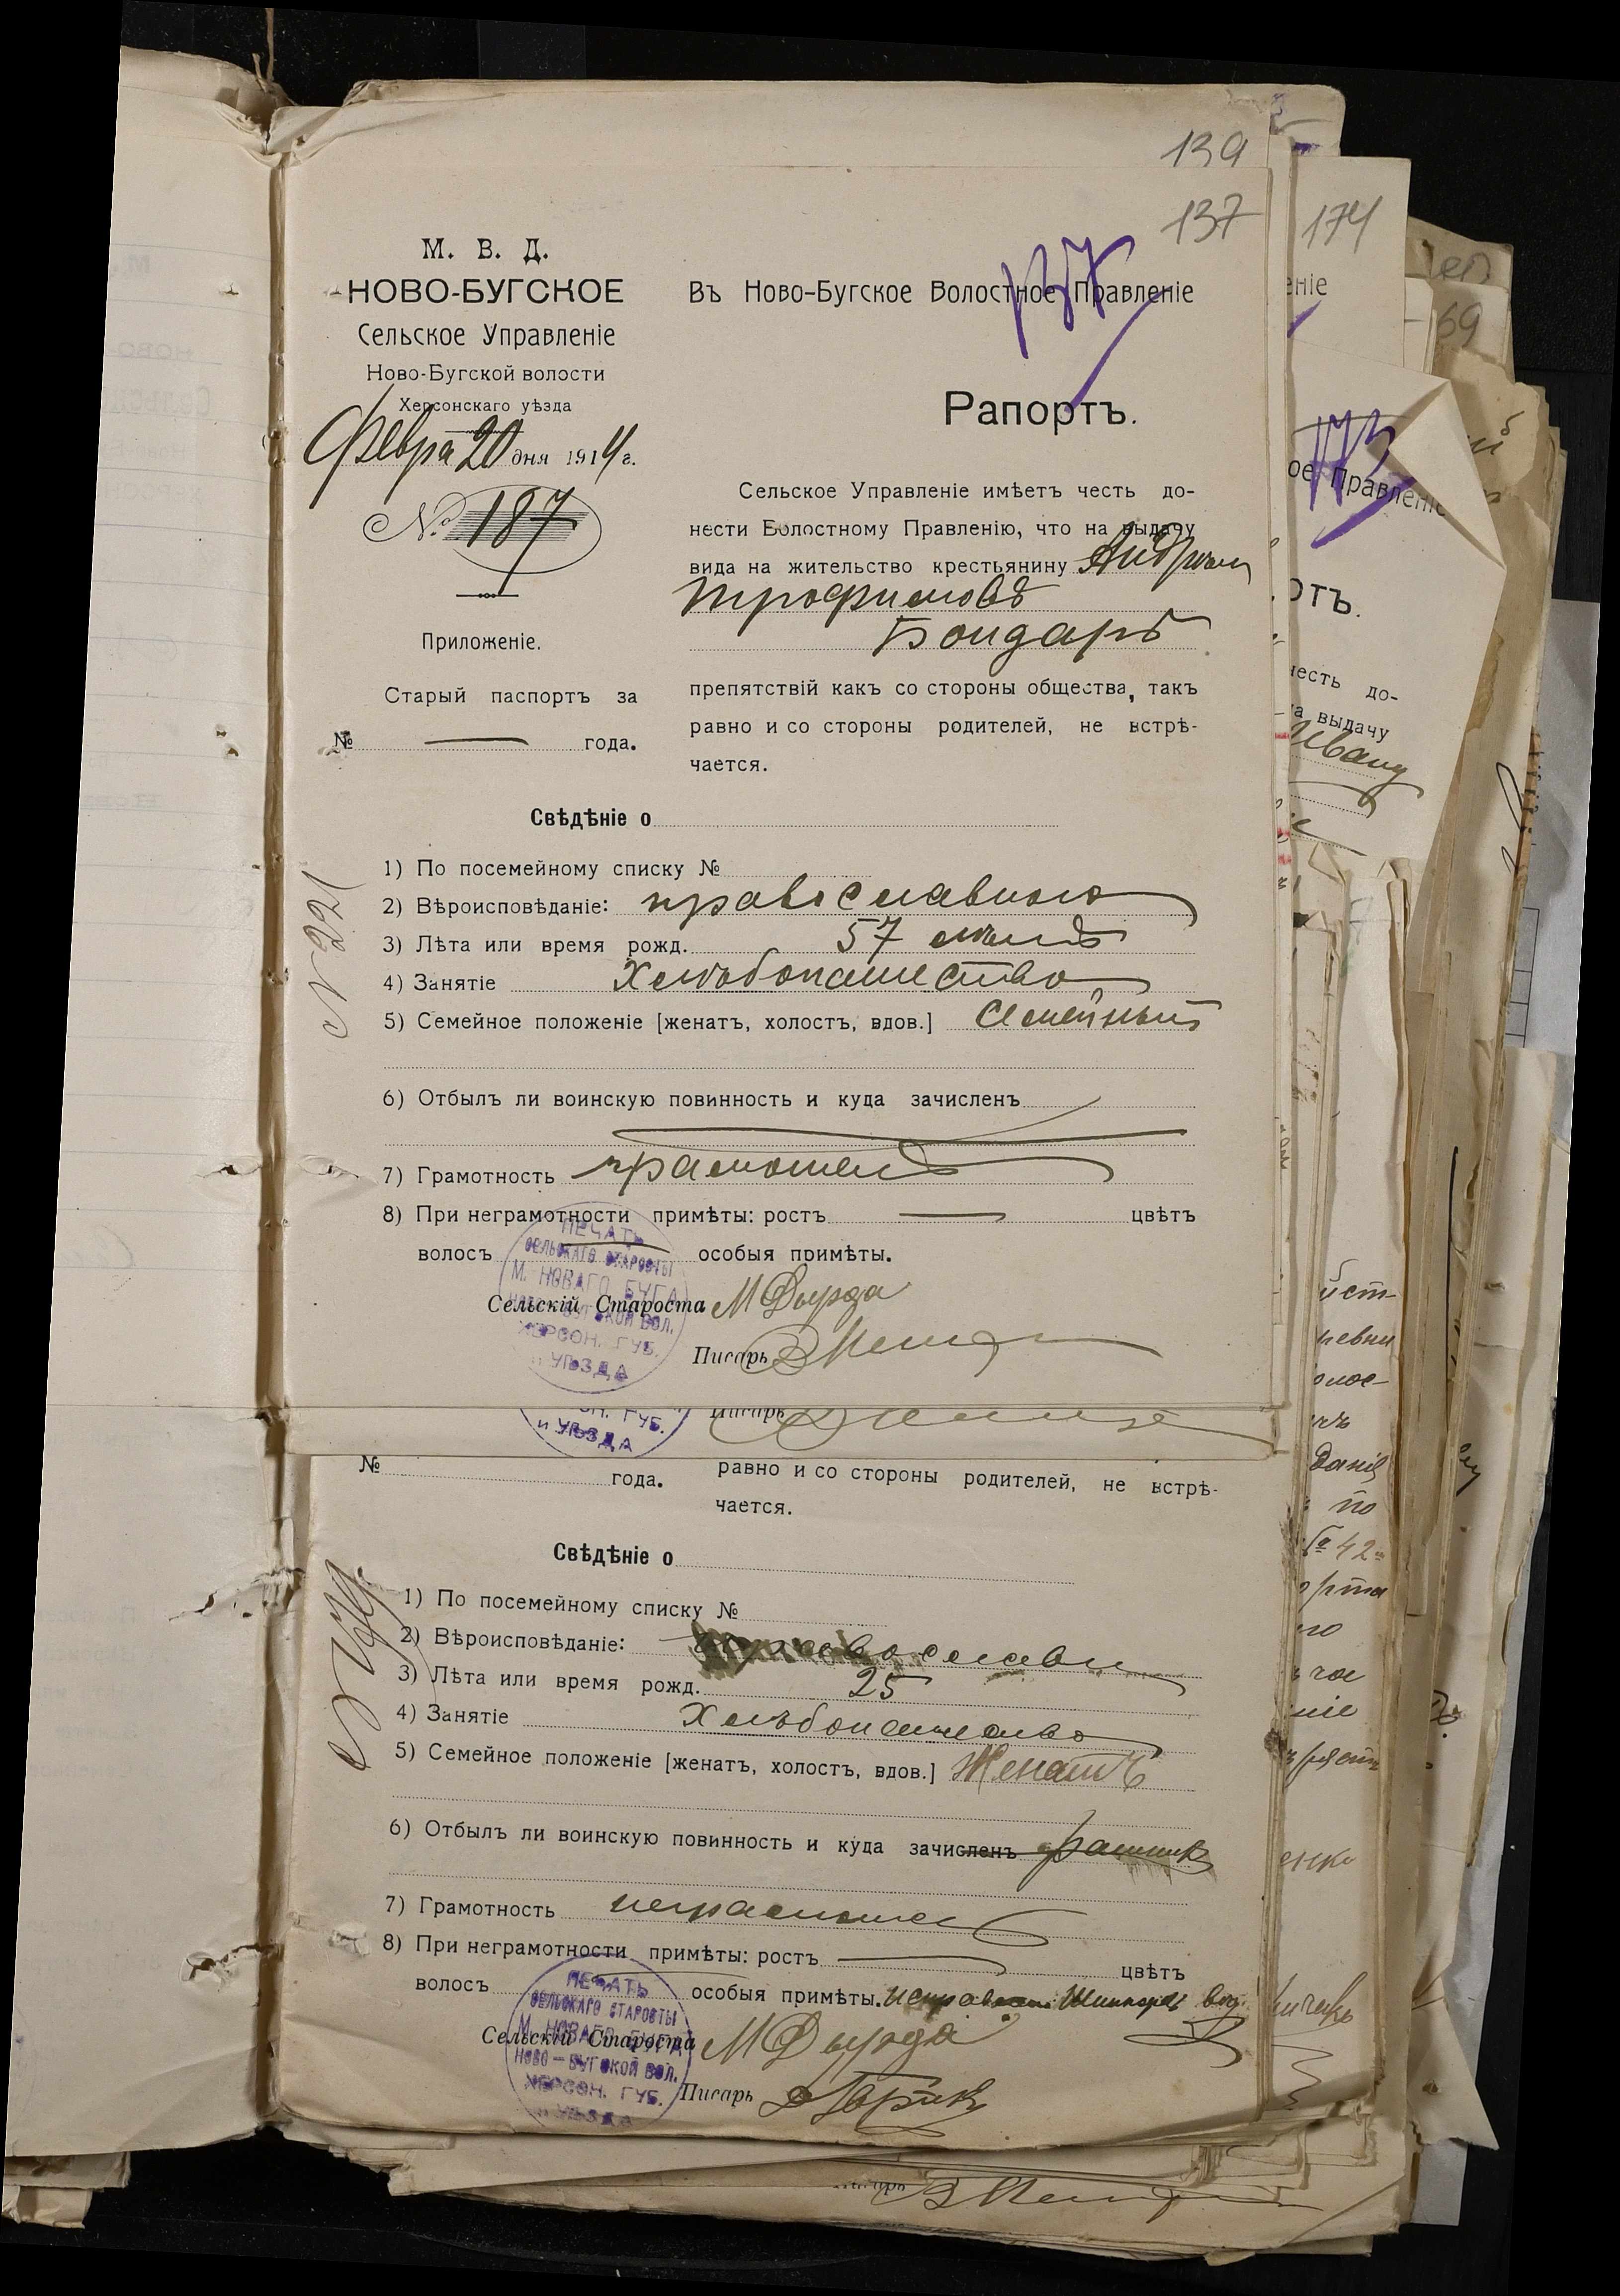 139
137
М. В. Д.
НОВО-БУГСКОЕ
Сельское Управленіе
Ново-Бугской волости
Херсонскаго уѣзда
Февра 20 дня 1914 г.
№ 187
Приложеніе.
Старый паспортъ за
№ — года.
137
Въ Ново-Бугское Волостное Правленіе
Рапортъ.
Сельское Управленіе имѣетъ честь до-
нести Волостному Правленію, что на выдачу
вида на жительство крестьянину
Трофимовъ
Бондарь
препятствій какъ со стороны общества, такъ
равно и со стороны родителей, не встрѣ-
чается.
Свѣдѣніе о
№ 221
1) По посемейному списку №
2) Вѣроисповѣданіе: православнаго
3) Лѣта или время рожд. 57 лѣтъ
4) Занятіе Хлѣбопашество
5) Семейное положеніе [женатъ, холостъ, вдов.] Семейный
6) Отбылъ ли воинскую повинность и куда зачисленъ
7) Грамотность грамотенъ
8) При неграмотности примѣты: ростъ — цвѣтъ
волосъ — особыя примѣты.
Сельскій Староста М Дырда
Писарь
ПЕЧАТЬ
СЕЛЬСКАГО СТАРОСТЫ
М. НОВАГО БУГА
НОВО-БУГСКОЙ ВОЛ.
ХЕРСОН. ГУБ.
И УѢЗДА
ОН. ГУБ.
и УѢЗДА
Писарь
№ года.
равно и со стороны родителей, не встрѣ-
чается.
Свѣдѣніе о
1) По посемейному списку №
2) Вѣроисповѣданіе: православн
3) Лѣта или время рожд. 25
4) Занятіе Хлѣбопашество
5) Семейное положеніе [женатъ, холостъ, вдов.] Женатъ
6) Отбылъ ли воинскую повинность и куда зачисленъ
7) Грамотность неграмотен
8) При неграмотности примѣты: ростъ — цвѣтъ
волосъ — особыя примѣты.
Сельскій Староста М Дырда
Писарь
ПЕЧАТЬ
СЕЛЬСКАГО СТАРОСТЫ
М. НОВАГО БУГА
НОВО-БУГСКОЙ ВОЛ.
ХЕРСОН. ГУБ.
И УѢЗДА
174
еніе
69
173
ое Правленіе
отъ.
честь до-
на выдачу
Ивану